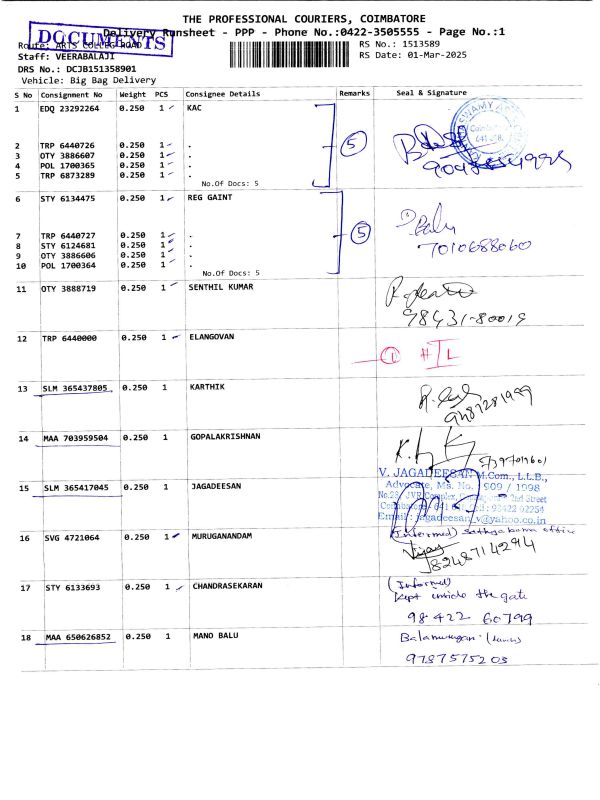 THE PROFESSIONAL COURIERS, COIMBATORE
Delivery Runsheet - PPP - Phone No.:0422-3505555 - Page No.:1
DOCUMENTS
Route: ARTS COLLEG ROAD
RS No.: 1513589
Staff: VEERABALAJI
RS Date: 01-Mar-2025
DRS No.: DCJB151358901
Vehicle: Big Bag Delivery
S No Consignment No Weight PCS Consignee Details Remarks Seal & Signature
1 EDQ 23292264 0.250 1 KAC
2 TRP 6440726 0.250 1 .
3 OTY 3886607 0.250 1 .
4 POL 1700365 0.250 1 .
5 TRP 6873289 0.250 1 .
No.Of Docs: 5
5
6 STY 6134475 0.250 1 REG GAINT
7 TRP 6440727 0.250 1 .
8 STY 6124681 0.250 1 .
9 OTY 3886606 0.250 1 .
10 POL 1700364 0.250 1 .
No.Of Docs: 5
5
7010688060
11 OTY 3888719 0.250 1 SENTHIL KUMAR
98431-80019
12 TRP 6440000 0.250 1 ELANGOVAN
1
13 SLM 365437805 0.250 1 KARTHIK
9487281999
14 MAA 703959504 0.250 1 GOPALAKRISHNAN
15 SLM 365417045 0.250 1 JAGADEESAN
V. JAGADEESAN M.Com., L.L.B.,
Advocate, Ms. No. 909 / 1998
No.28, JVR Complex, 2nd Street
Cell: 98422 02254
Email: jagadeesan_v@yahoo.co.in
16 SVG 4721064 0.250 1 MURUGANANDAM
(Informed) office
Vijay
8248714294
17 STY 6133693 0.250 1 CHANDRASEKARAN
(Informed)
kept inside the gate
98422 60799
18 MAA 650626852 0.250 1 MANO BALU
Balamurugan
9787575203